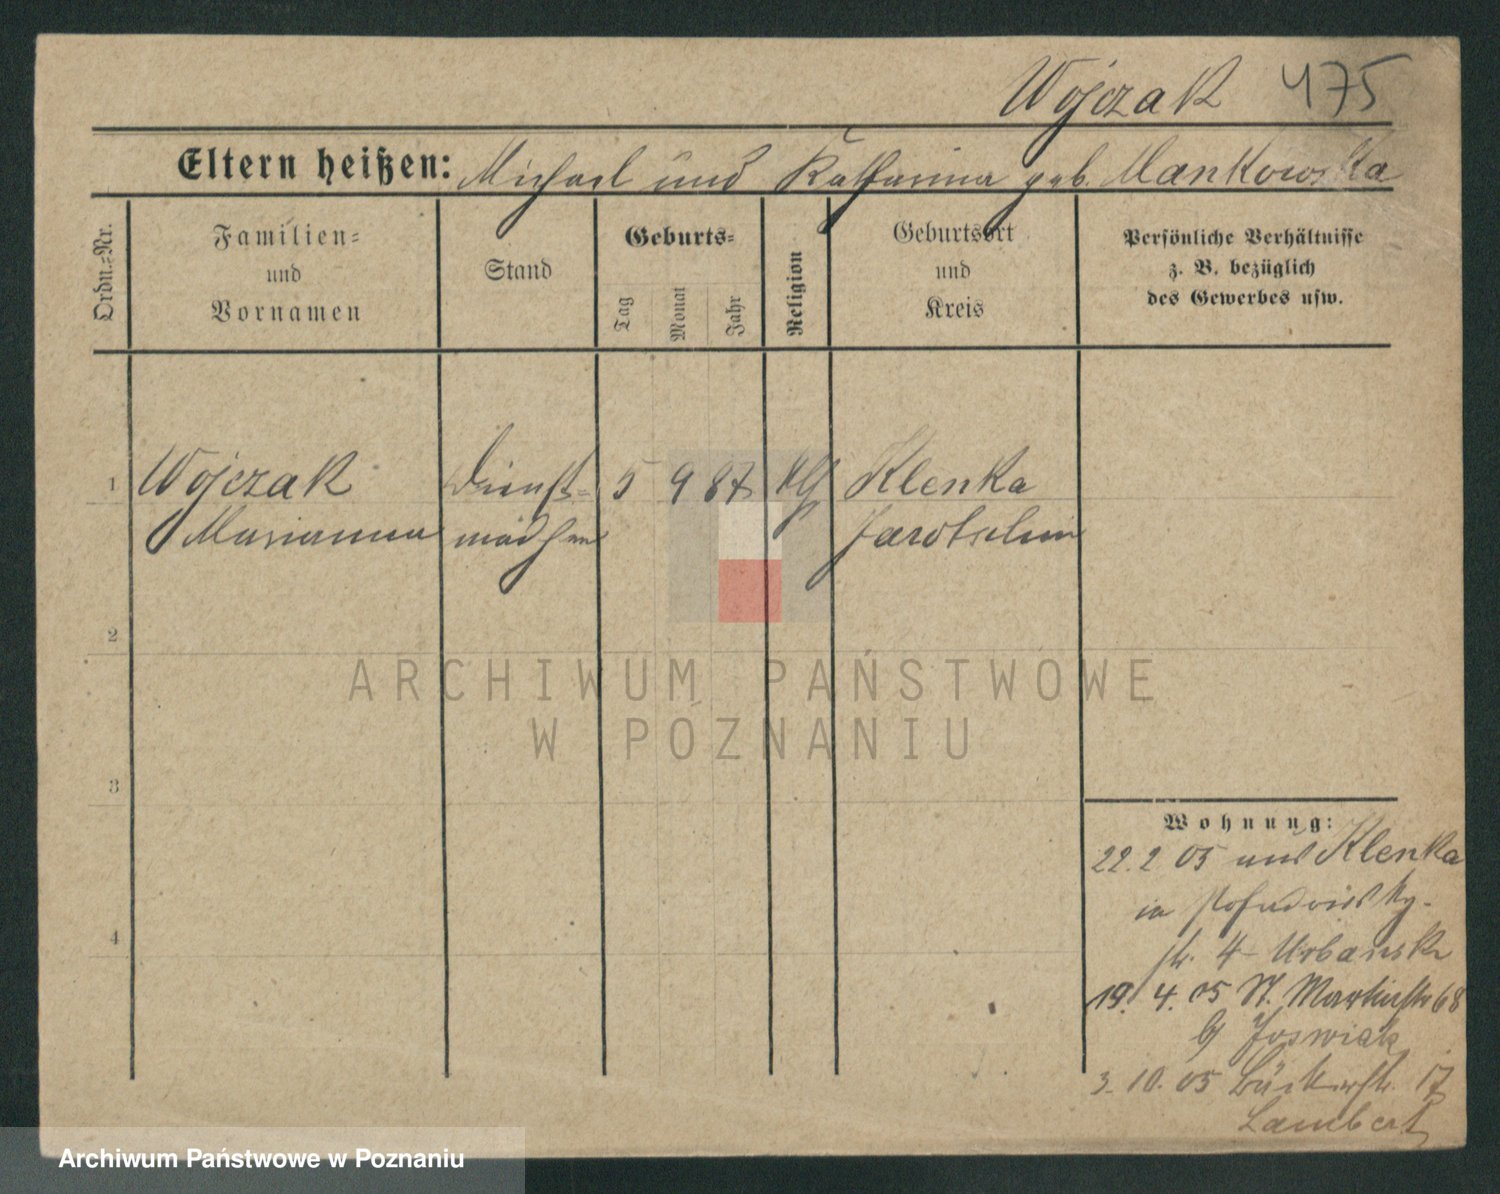 Wojczak 475
Eltern heißen: Michael und Katharina geb. Mankowska
Ordn.-Nr.
Familien-
und
Vornamen
Stand
Geburts-
Tag
Monat
Jahr
Religion
Geburtsort
und
Kreis
Persönliche Verhältnisse
z. B. bezüglich
des Gewerbes usw.
1 Wojczak Dienst- 5 9 87 Klenka
Marianna mädchen Jarotschin
2
3
4
ARCHIWUM PAŃSTWOWE
W POZNANIU
Wohnung:
22.2 05 aus Klenka
in
str. 4 Urbanski
19. 4. 05 St. Martinstr 68
b/ Joswiak
3. 10. 05 Bäckerstr. 17
Lambert
Archiwum Państwowe w Poznaniu